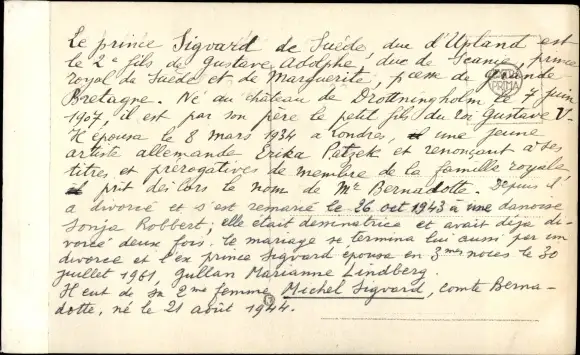 Le prince Sigvard de Suède, duc d'Upland est
le 2e fils de Gustave Adolphe, duc de Scanie, prince
royal de Suède et de Marguerite, pcesse de Grande
Bretagne. Né au château de Drottningholm le 7 juin
1907, il est par son père le petit fils du roi Gustave V.
Il épousa le 8 mars 1934 à Londres, une jeune
artiste allemande Erika Patzek et renonçant à ses
titres et prérogatives de membre de la famille royale,
il prit dès lors le nom de Mr Bernadotte. Depuis il
a divorcé et s'est remarié le 26 oct 1943 à une danoise
Sonja Robbert; elle était dessinatrice et avait déja di-
vorcé deux fois. Le mariage se termina lui aussi par un
divorce et l'ex prince Sigvard épousa en 3mes noces le 30
juillet 1961, Gullan Marianne Lindberg.
Il eut de sa 2me femme Michel Sigvard, comte Berna-
dotte, né le 21 août 1944.
PRIMA